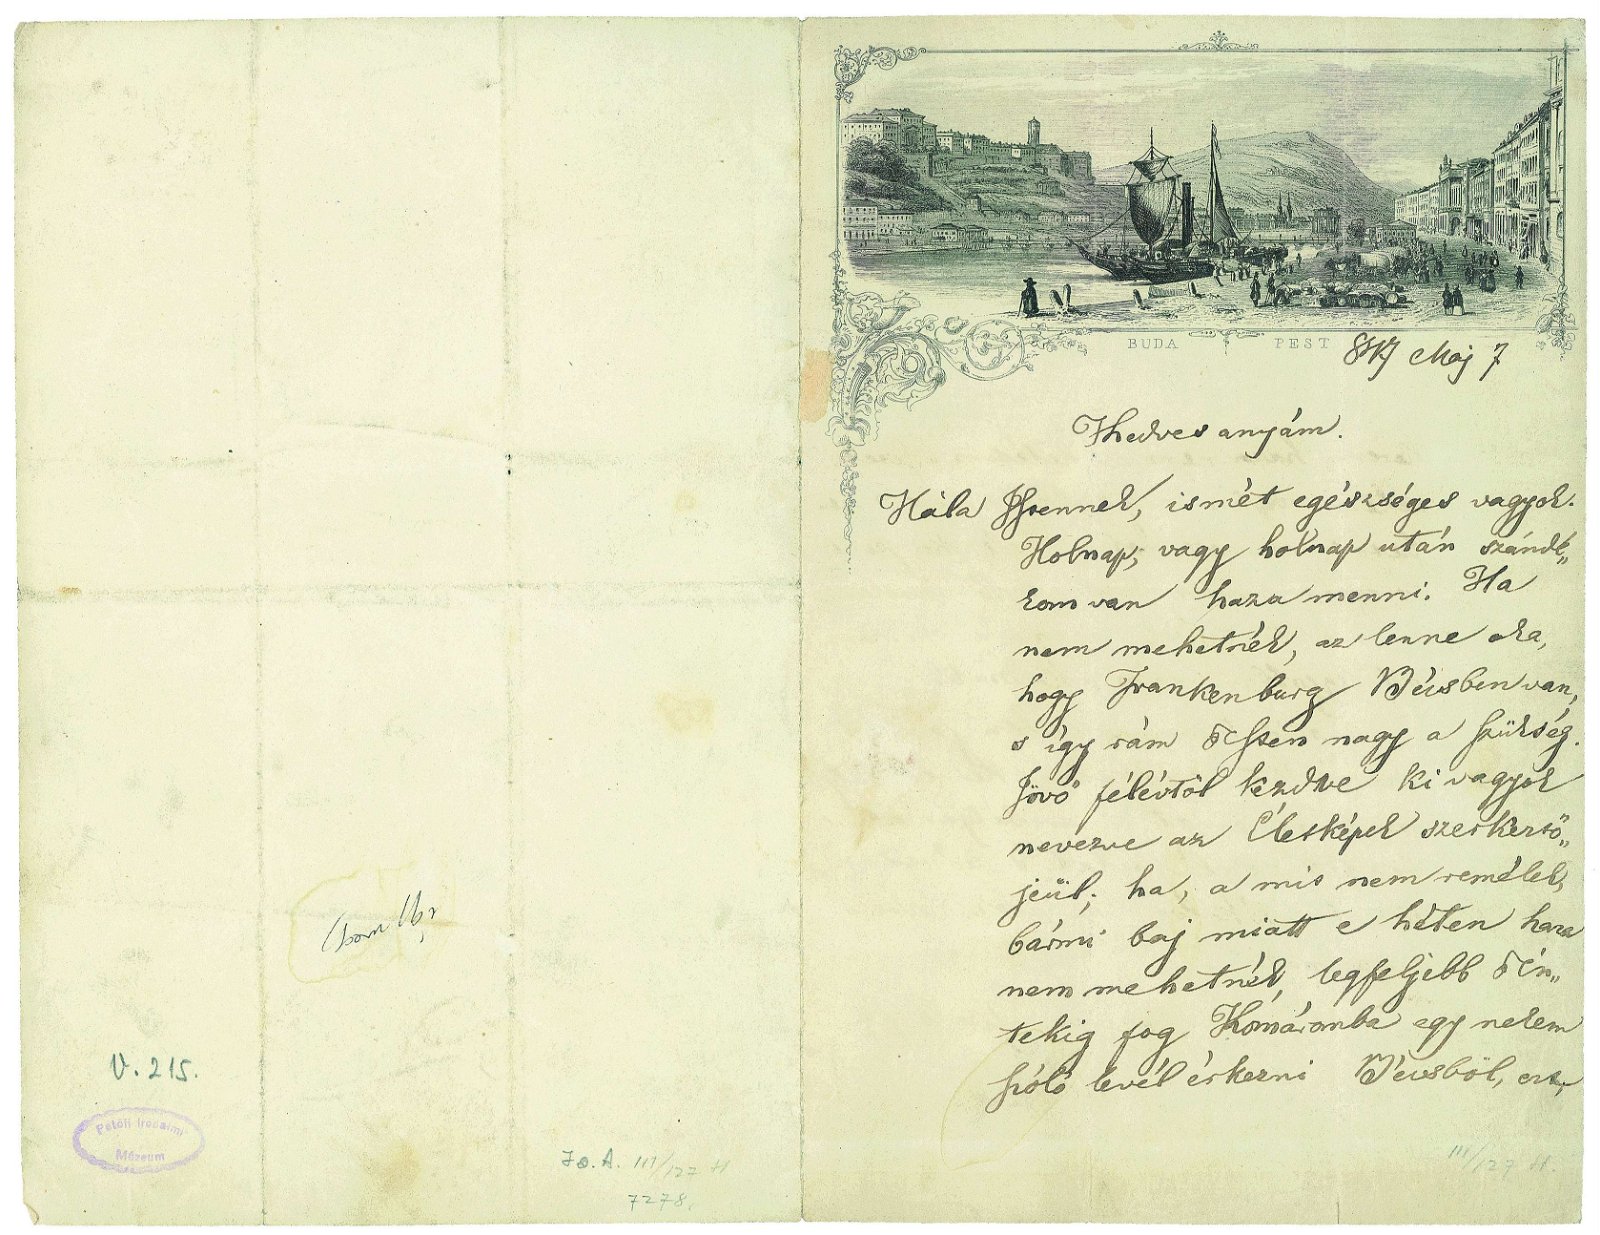 V. 215.
Petőfi Irodalmi
Múzeum
Jó. A. 111/127 H
7278.
BUDA PEST 847 Maj 7
Kedves anyám.
Hála Istennek, ismét egészséges vagyok.
Holnap, vagy holnap után szándé„
kom van haza menni. Ha
nem mehetnék, az lenne oka,
hogy Frankenburg Bécsben van,
s így rám itten nagy a szükség.
Jövő félévtől kezdve ki vagyok
nevezve az Életképek szerkesztő„
jeül; ha, a mit nem remélek,
bármi baj miatt e héten haza
nem mehetnék, legfeljebb Pén„
tekig fog Komáromba egy nekem
szóló levél érkezni Bécsből, ezt
111/127 H.